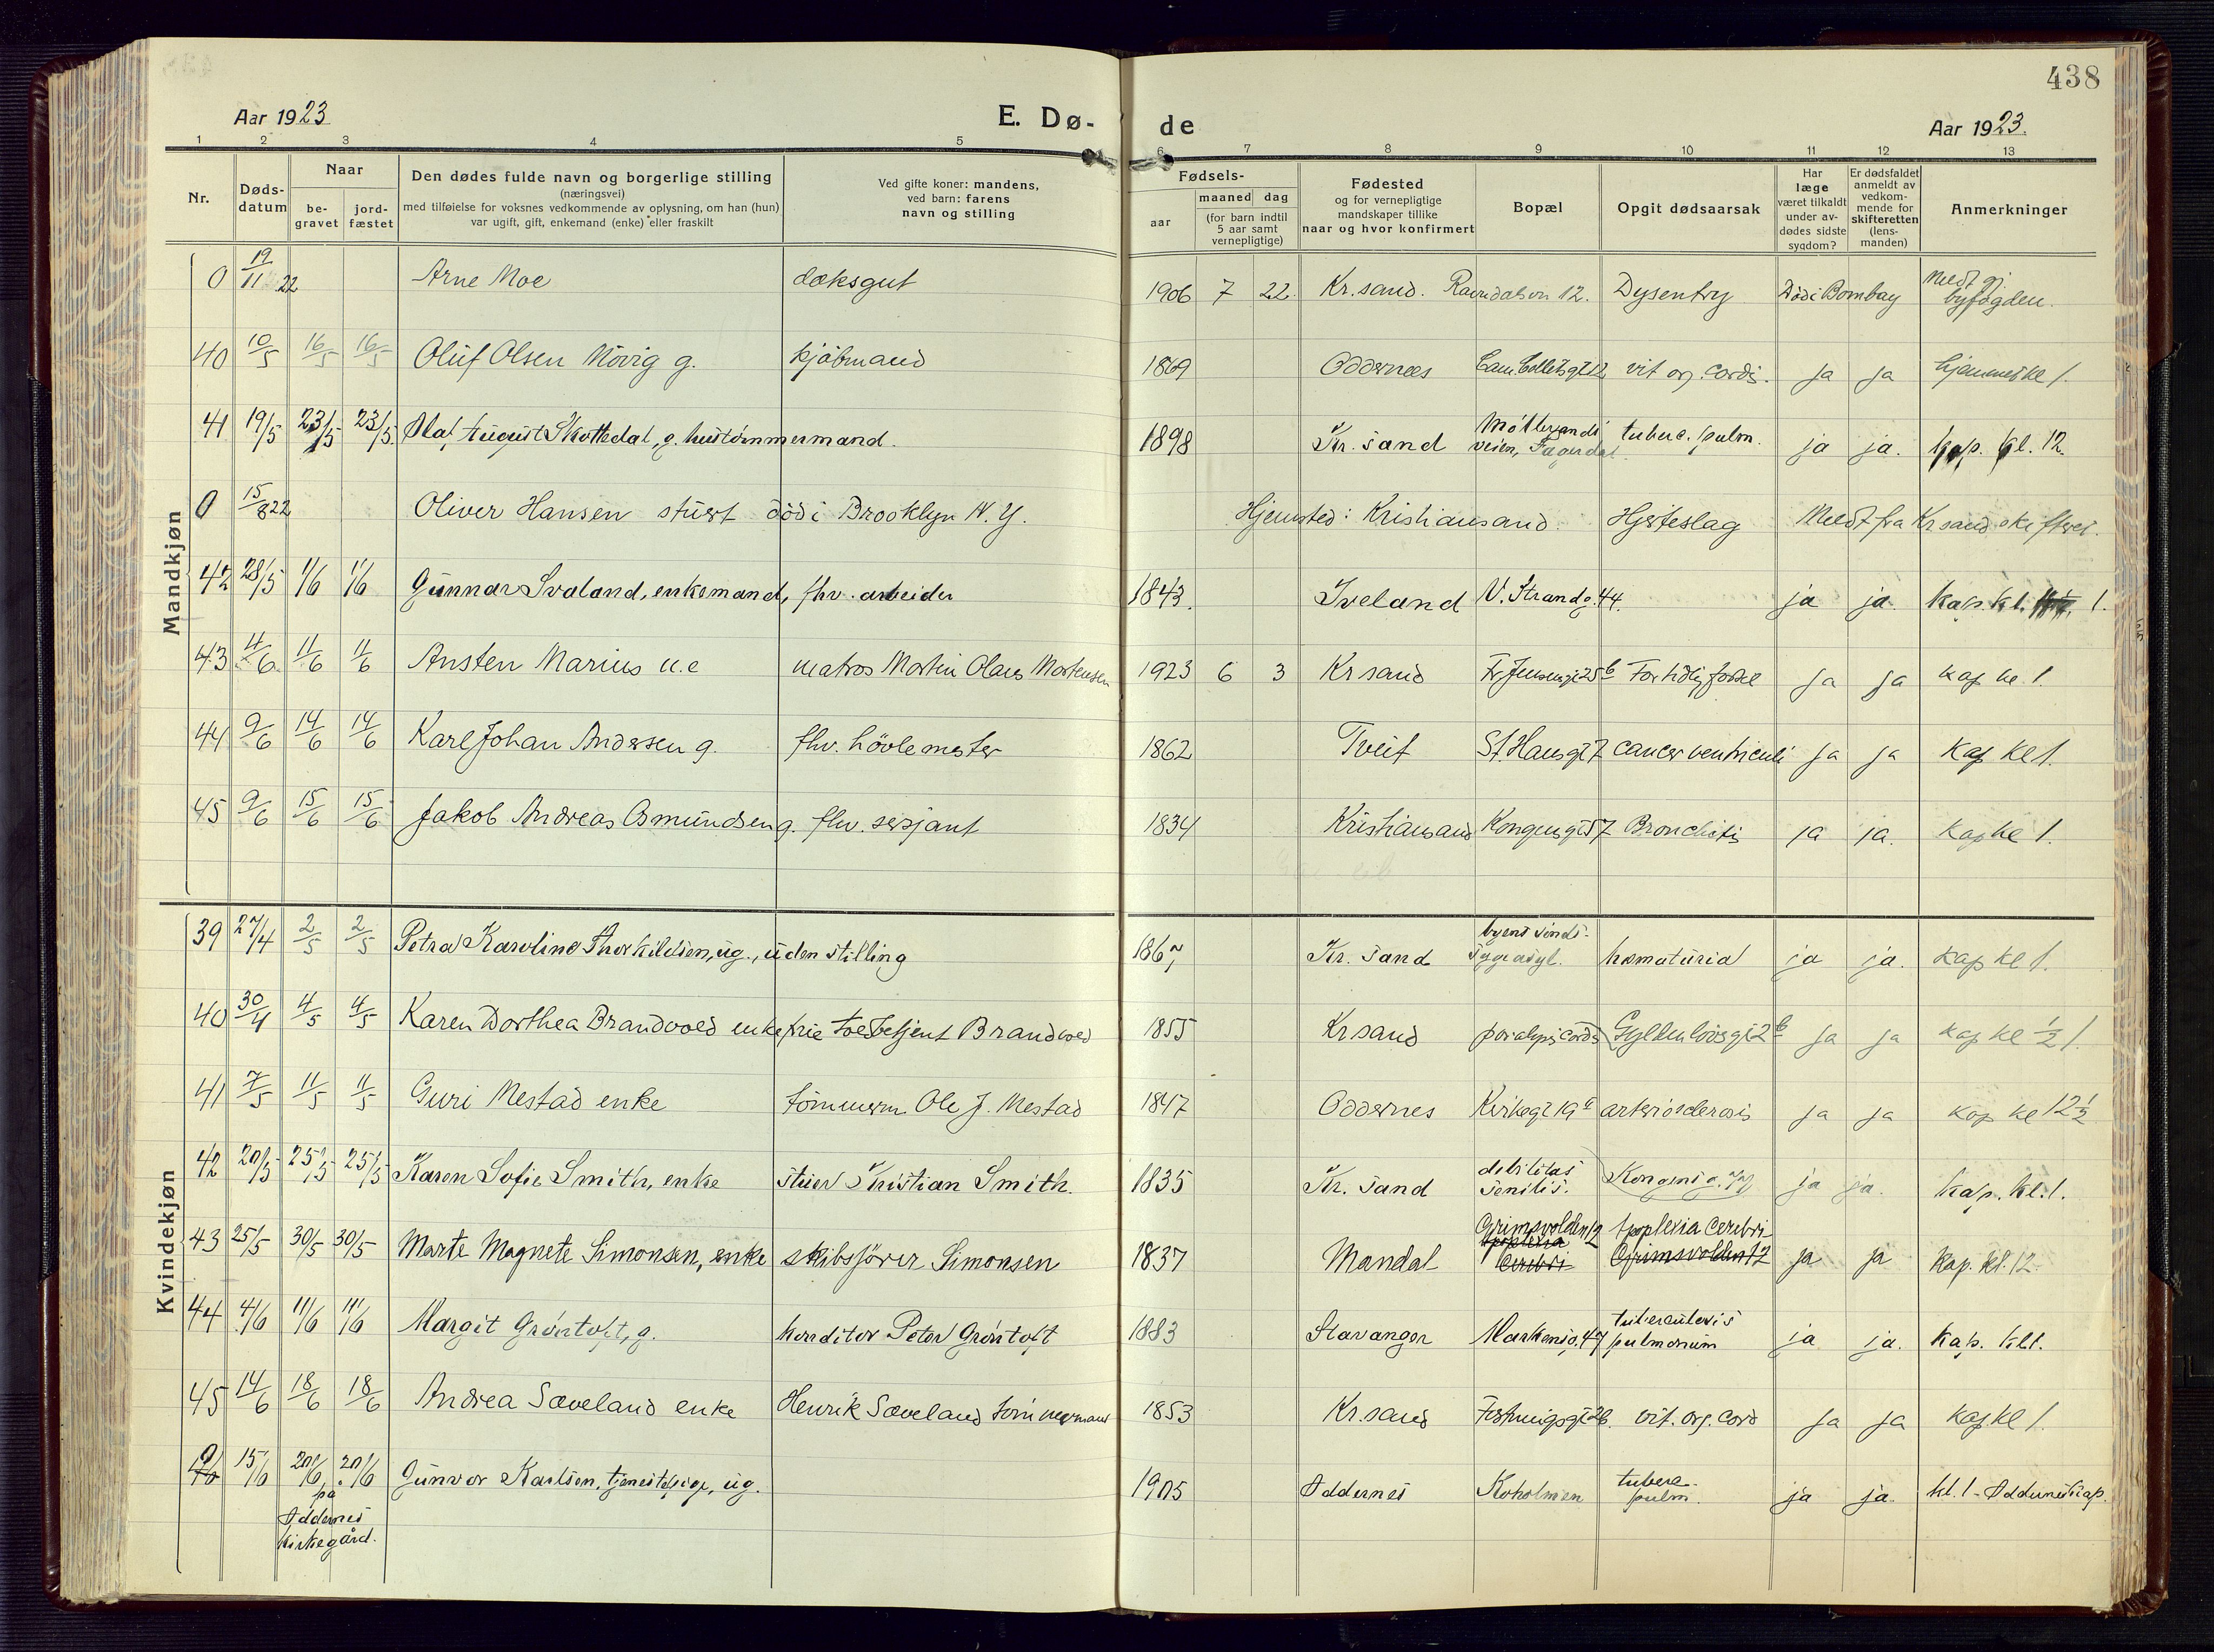 438
Aar 1923
E. Dø-
de
Aar 1923.
1 2 3 4 5 6 7 8 9 10 11 12 13
Nr.
Døds-
datum
Naar
be-
gravet
jord-
fæstet
Den dødes fulde navn og borgerlige stilling
(næringsvei)
med tilføielse for voksnes vedkommende av oplysning, om han (hun)
var ugift, gift, enkemand (enke) eller fraskilt
Ved gifte koner: mandens,
ved barn: farens
navn og stilling
Fødsels-
aar
maaned dag
(for barn indtil
5 aar samt
vernepligtige)
Fødested
og for vernepligtige
mandskaper tillike
naar og hvor konfirmert
Bopæl
Opgit dødsaarsak
Har
læge
været tilkaldt
under av-
dødes sidste
sygdom?
Er dødsfaldet
anmeldt av
vedkom-
mende for
skifteretten
(lens-
manden)
Anmerkninger
Mandkjøn
0 19/11 22 Arne Moe dæksgut 1906 7 22. Kr.sand. 12. Dysentry Död i Bombay Meldt gj.
byfogden.
40 10/5 16/5 16/5 Oluf Olsen Növig g. kjöbmand 1869 Oddernes Cam. Colletsgt 12 vit org. cordis. ja ja hjemmet kl 1.
41 19/5 23/5 23/5. Olaf August Skottedal, g. hustömmermand. 1898 Kr. sand tuberc. pulm. ja ja. kap. kl. 12.
veien,
0 15/8 22 Oliver Hansen stuert död i Brooklyn N.Y. Hjemsted: Kristiansand. Hjerteslag Meldt fra Kr sand skifteret.
42 28/5 1/6 1/6 Gunnar Svaland, enkemand, fhv. arbeider 1843. Iveland V. Strandg. 44. ja ja. kap. kl. 1.
43 4/6 11/6 11/6 Ansten Marius u.e matros Martin Olaus Mortensen 1923 6 3 Kr sand Fr. Jensensgt 25 b For tidlig födsel ja ja kap kl. 1.
44 9/6 14/6 14/6 Karl Johan Andersen g. fhv. hövlemester 1862 Tveit St. Hansgt 7 cancer ventriculi ja ja Kap kl 1.
45 9/6 15/6 15/6 Jakob Andreas Osmundsen g. fhv. sersjant 1834 Kristiansand Kongensgt 57 Bronchitis ja ja. Kap kl 1.
Kvindekjøn
39 27/4 2/5 2/5 Petra Karoline Thorkildsen, ug., uden stilling 186 Kr. sand byens sinds-
sygeasyl. hæmaturia ja ja. kap kl 1.
40 30/4 4/5 4/5 Karen Dorthea Brandvold enke frie toldbetjent Brandvold 1855 Kr sand paralysis cordis Gyldenlövesgt 2 b ja ja kap kl 1/2 1.
41 7/5 11/5 11/5 Guri Mestad enke tömmerm Ole J. Mestad 1847 Oddernes Kirkegt 19 a arteriosclerosis ja ja kap kl 12 1/2
42 20/5 25/5 25/5 Karen Sofie Smith, enke stuer Kristian Smith. 1835 Kr. sand debilitas
senilis. Kongensg. ja ja. kap. kl. 1.
43 25/5 30/5 30/5 Marte Magnete Simonsen, enke skibsförer Simonsen 1837 Mandal Grimsvolden 12 Apoplexia Cerebri
Apoplexia
Cerebri Grimsvolden 12 ja ja Kap. kl. 12.
44 4/6 11/6 11/6 Margit Gröntoft, g. konditor Peter Gröntoft 1883 Stavanger Markensg. 47 tuberculosis
pulmonum ja ja. kap. kl 1.
45 14/6 18/6 18/6 Andrea Sæveland enke Henrik Sæveland tömmermand 1853 Kr. sand Festningsgt 26. vit. org. cord ja ja kap. kl 1.
0 15/6 20/6 20/6 Gunvor Karlsen, tjenestepige, ug. 1905 Oddernes Koholmen tuberc.
pulm. ja ja. kl. 1 - Oddernes kap.
på
Oddernes
kirkegård.